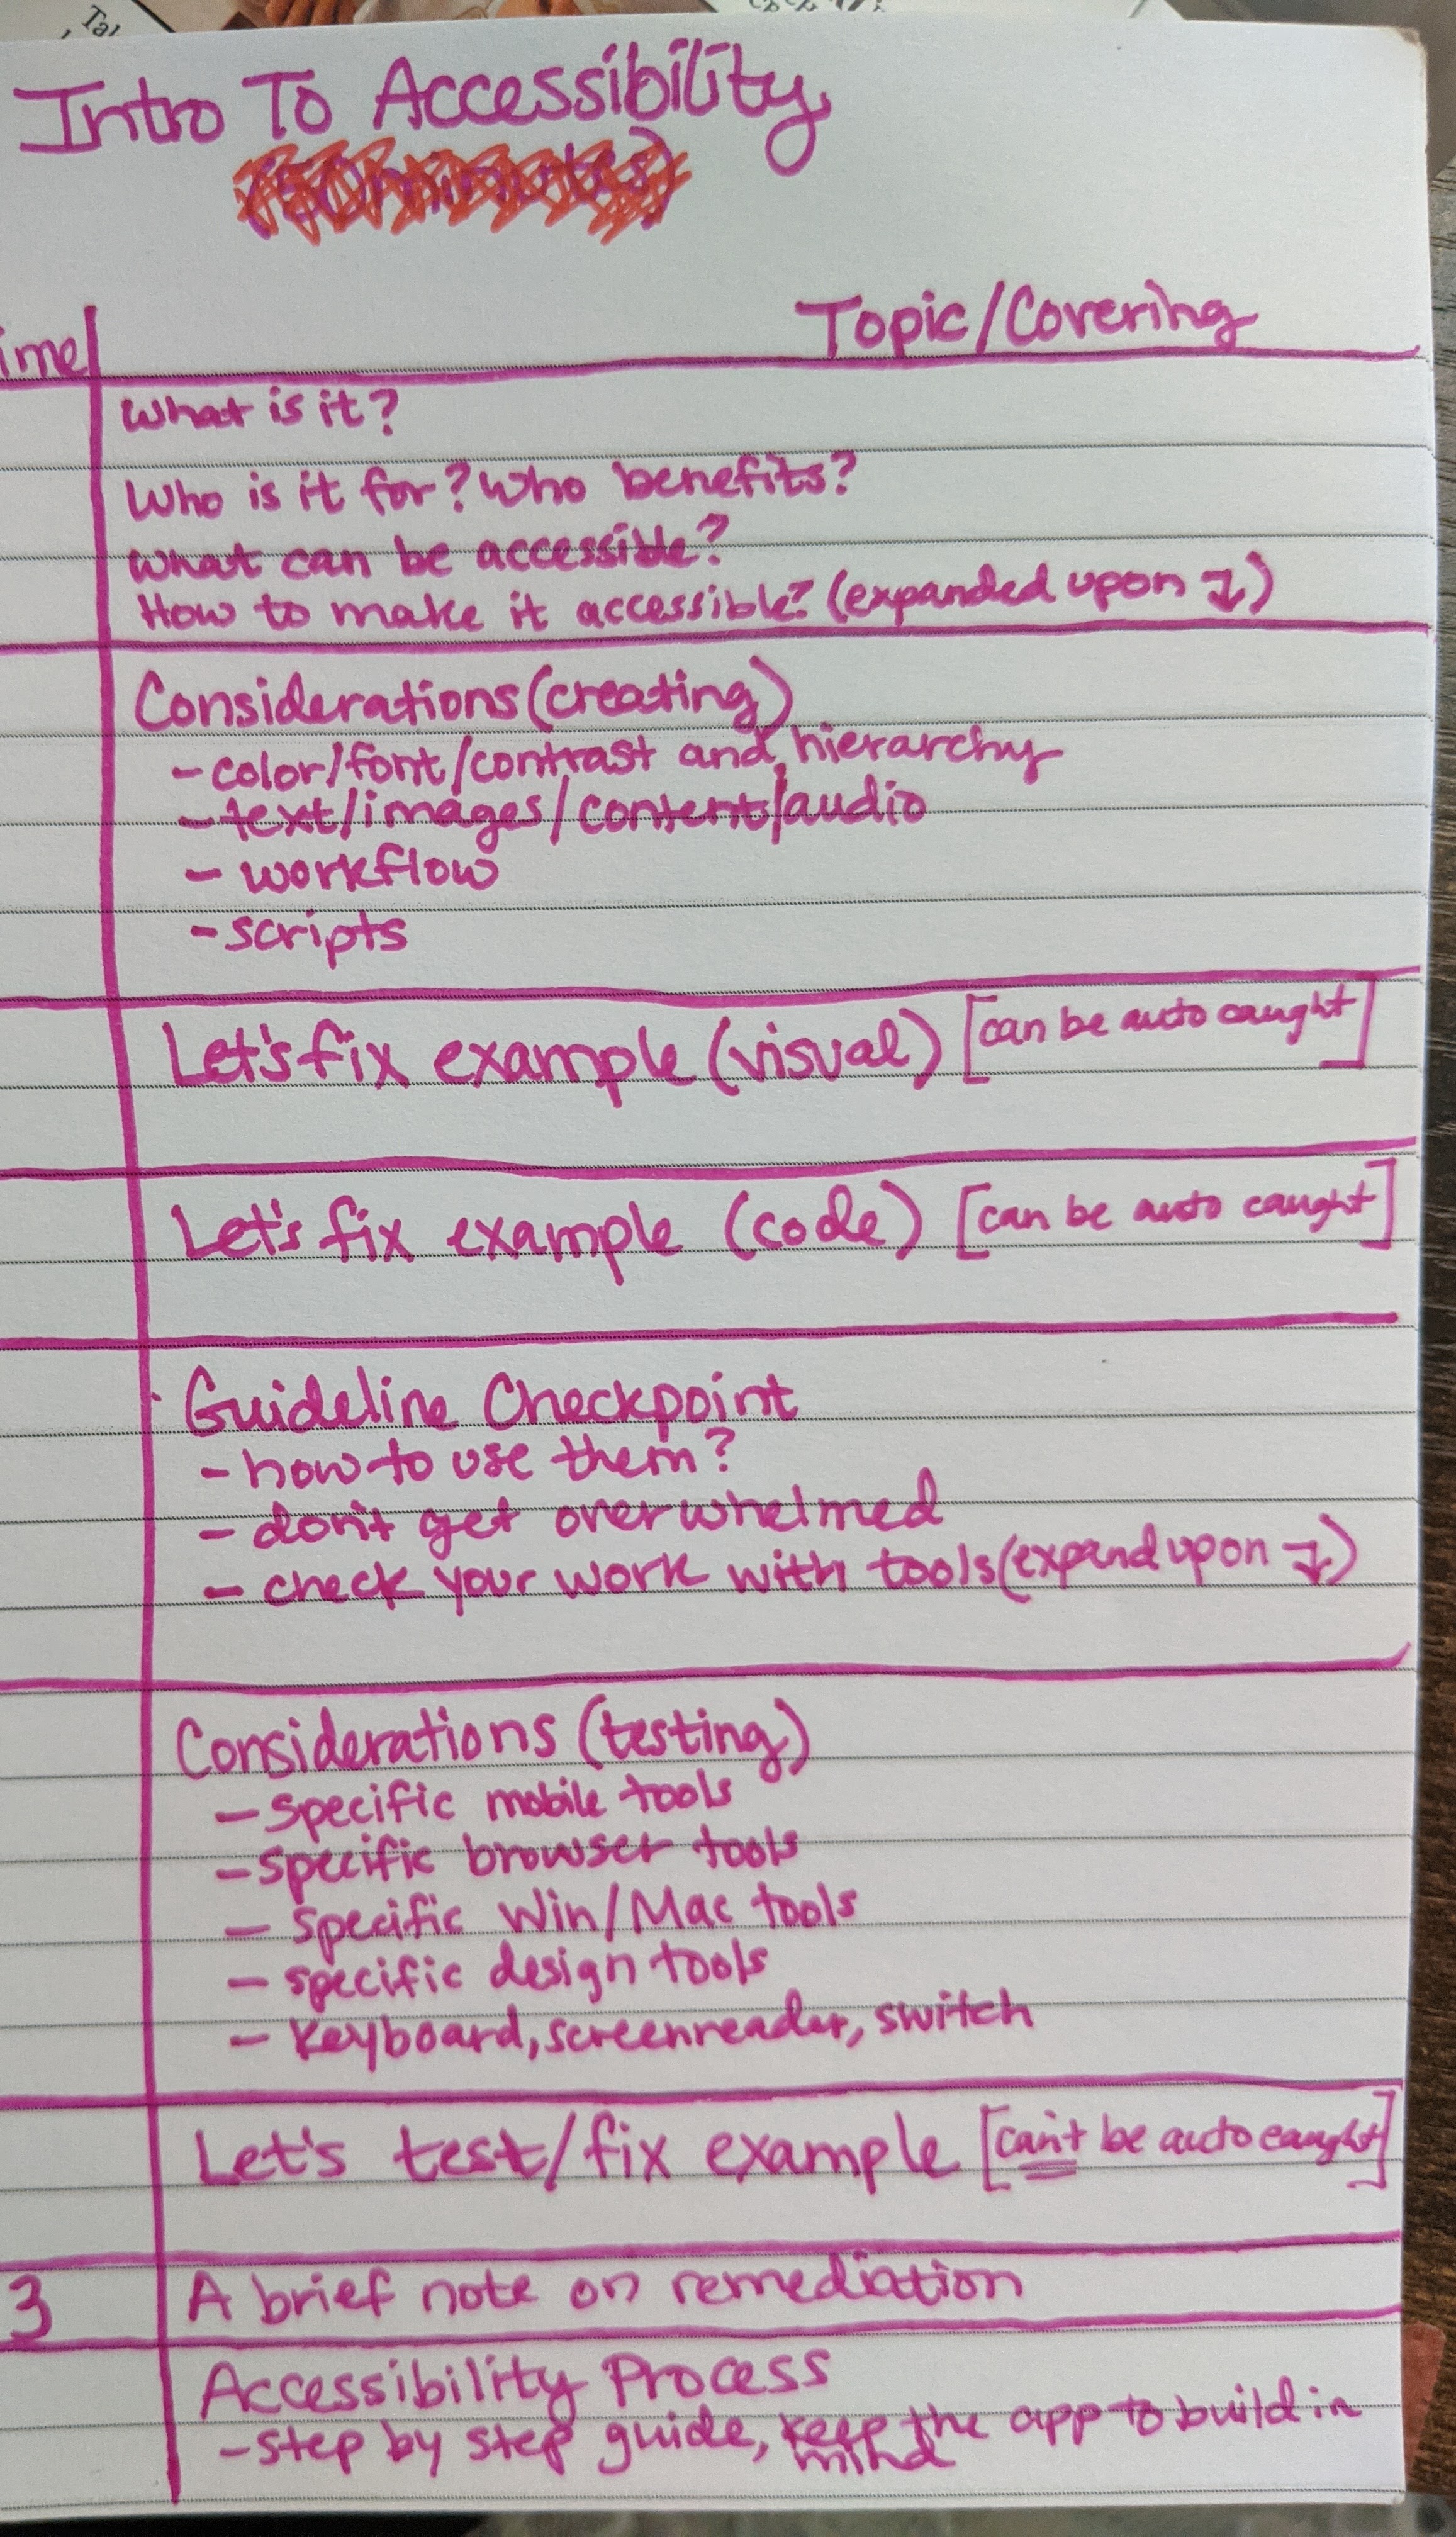 Tal
Intro To Accessibility
ime
Topic/Covering
What is it?
Who is it for? Who benefits?
What can be accessible?
How to make it accessible? (expanded upon ↴)
Considerations (creating)
- color/font/contrast and hierarchy
- text/images/content/audio
- workflow
- scripts
Let's fix example (visual) [can be auto caught]
Let's fix example (code) [can be auto caught]
Guideline Checkpoint
- how to use them?
- don't get overwhelmed
- check your work with tools (expand upon ↴)
Considerations (testing)
- specific mobile tools
- specific browser tools
- specific Win/Mac tools
- specific design tools
- Keyboard, screenreader, switch
Let's test/fix example [can't be auto caught]
3 A brief note on remediation
Accessibility Process
- step by step guide, keep the app to build in
mind